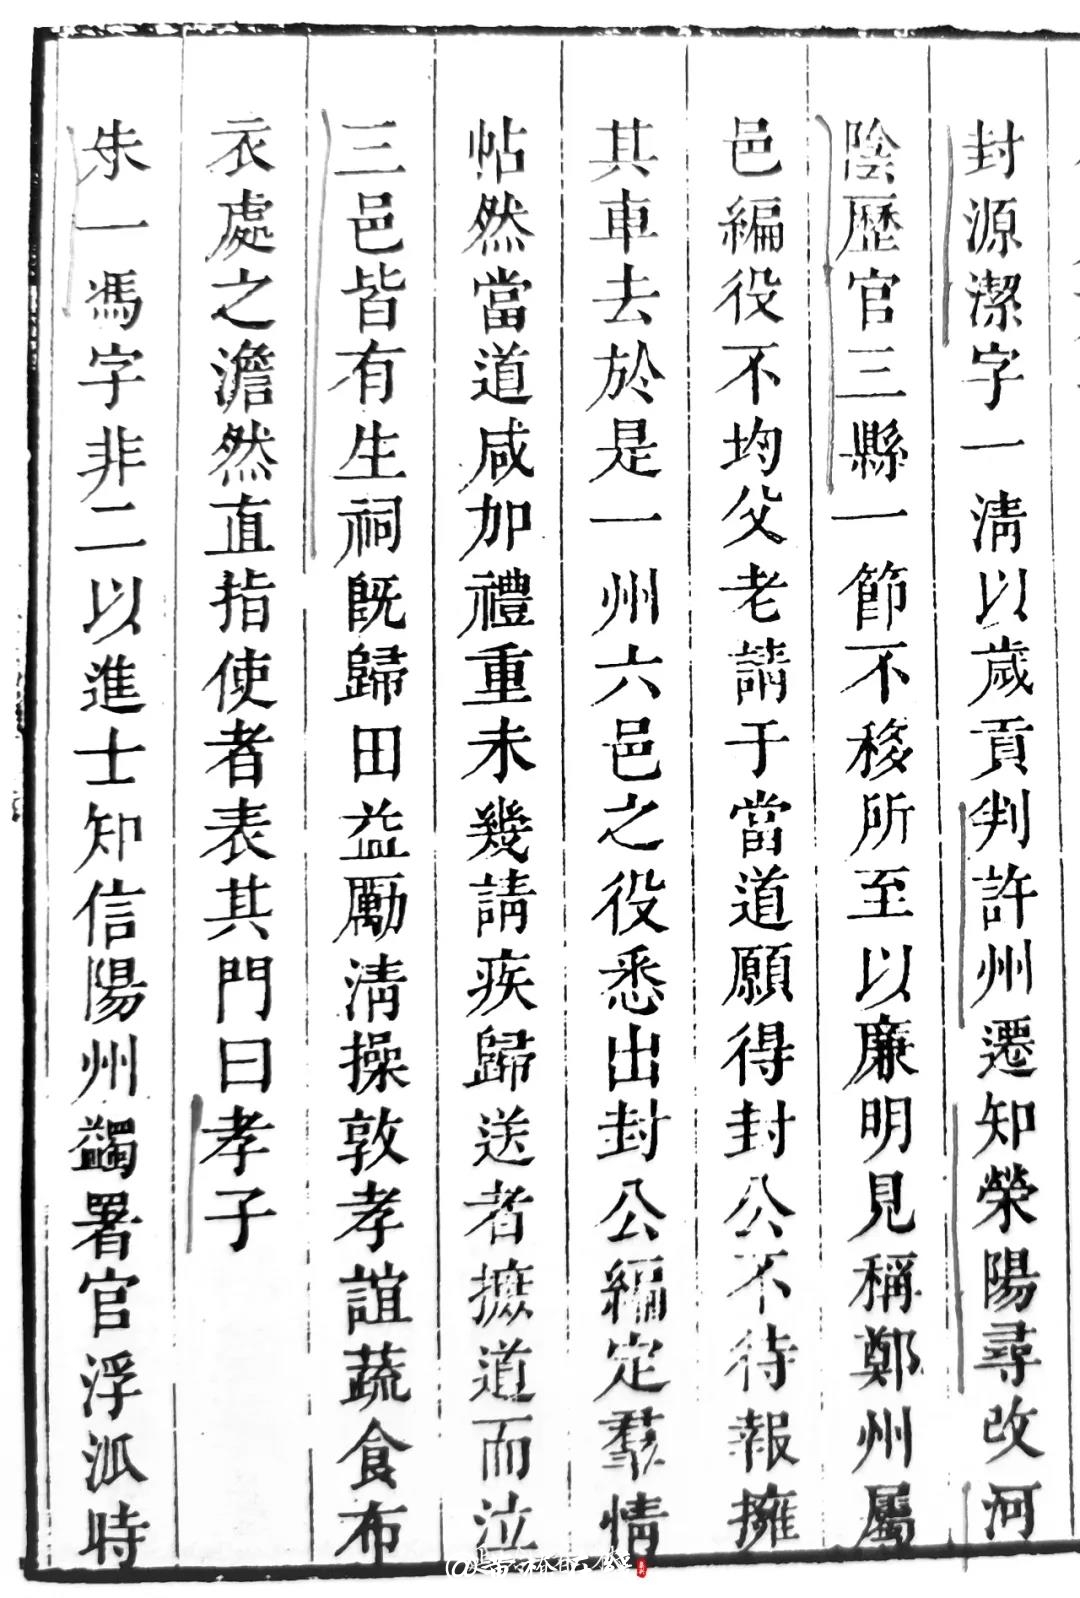 封源潔字一清以歲貢判許州遷知榮陽尋改河
陰歷官三縣一節不移所至以廉明見稱鄭州屬
邑編役不均父老請于當道願得封公不待報擁
其車去於是一州六邑之役悉出封公編定羣情
帖然當道咸加禮重未幾請疾歸送者摭道而泣
三邑皆有生祠既歸田益勵清操敦孝誼蔬食布
衣處之澹然直指使者表其門曰孝子
朱一馮字非二以進士知信陽州蠲署官浮派時